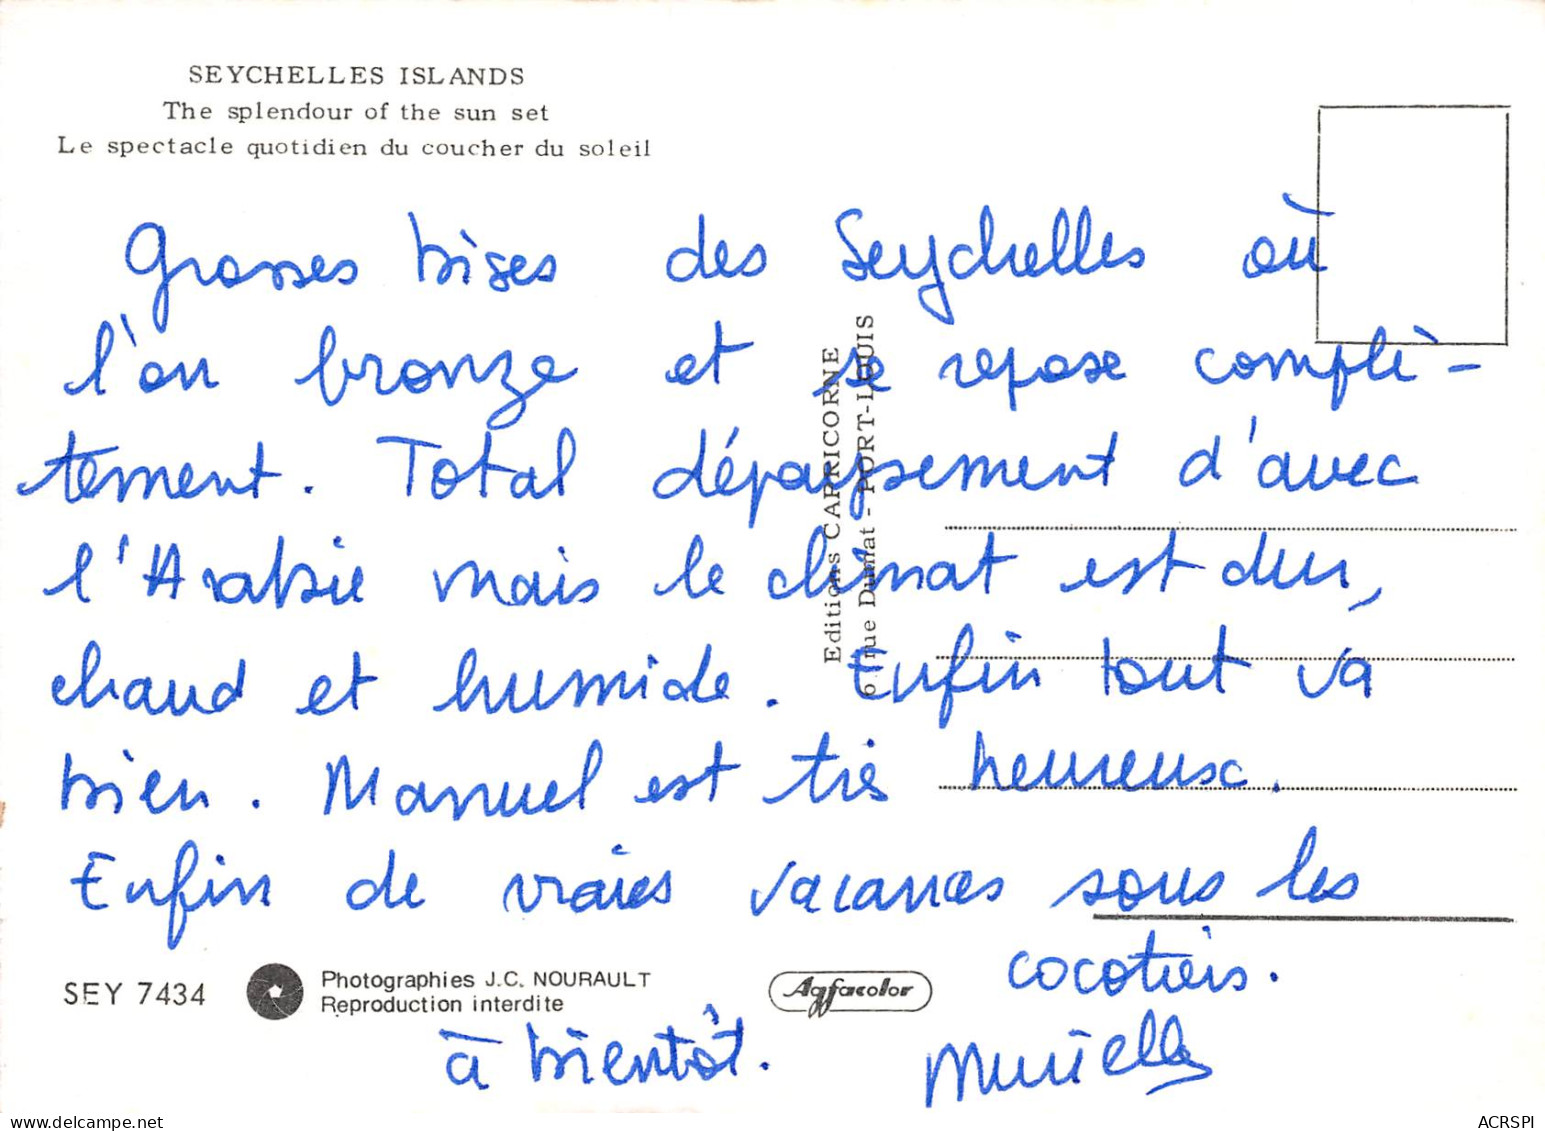 SEYCHELLES ISLANDS
The splendour of the sun set
Le spectacle quotidien du coucher du soleil
Grosses bises des Seychelles où
l'on bronze et se repose complè-
tement. Total dépaysement d'avec
l'Arabie mais le climat est dur,
chaud et humide. Enfin tout va
bien. Manuel est très heureux.
Enfin de vraies vacances sous les
cocotiers.
à bientôt.
Murielle
Editions CAPRICORNE
6, rue Dumat - PORT-LOUIS
SEY 7434
Photographies J.C. NOURAULT
Reproduction interdite
Agfacolor
www.delcampe.net
ACRSPI